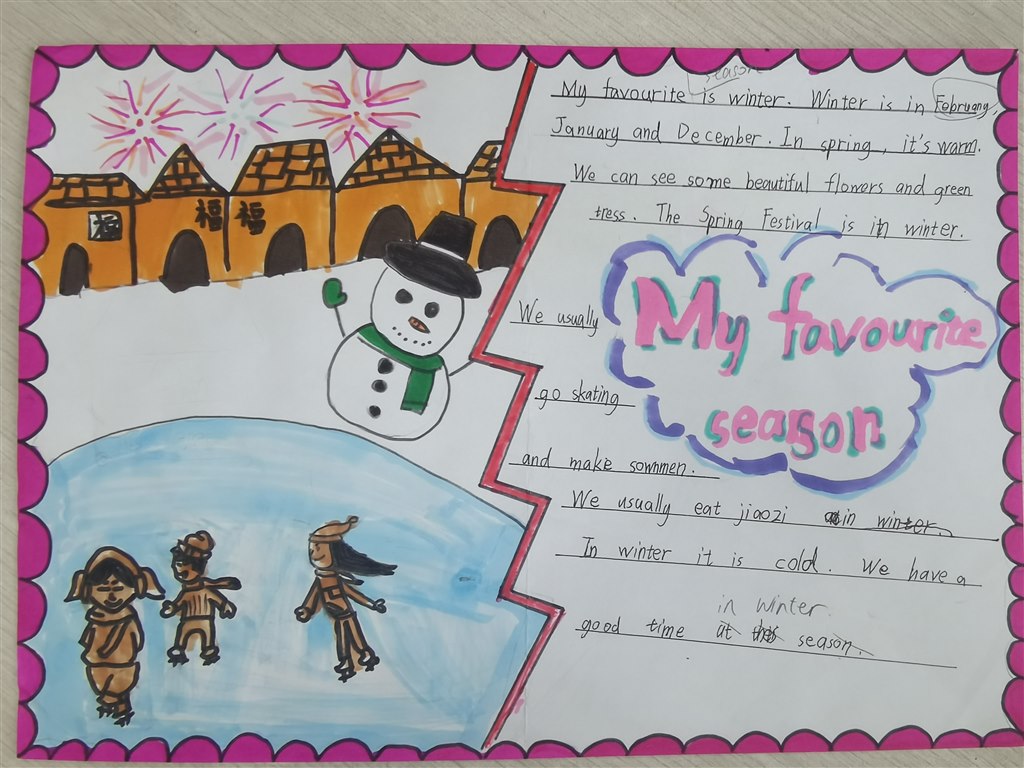 season
My favourite is winter. Winter is in February,
January and December. In spring, it's warm.
We can see some beautiful flowers and green
tress. The Spring Festival is in winter.
福 福 福
My favourite
We usually
go skating
season
and make sownmen.
We usually eat jiaozi in winter.
In winter it is cold. We have a
in winter.
good time at this season.